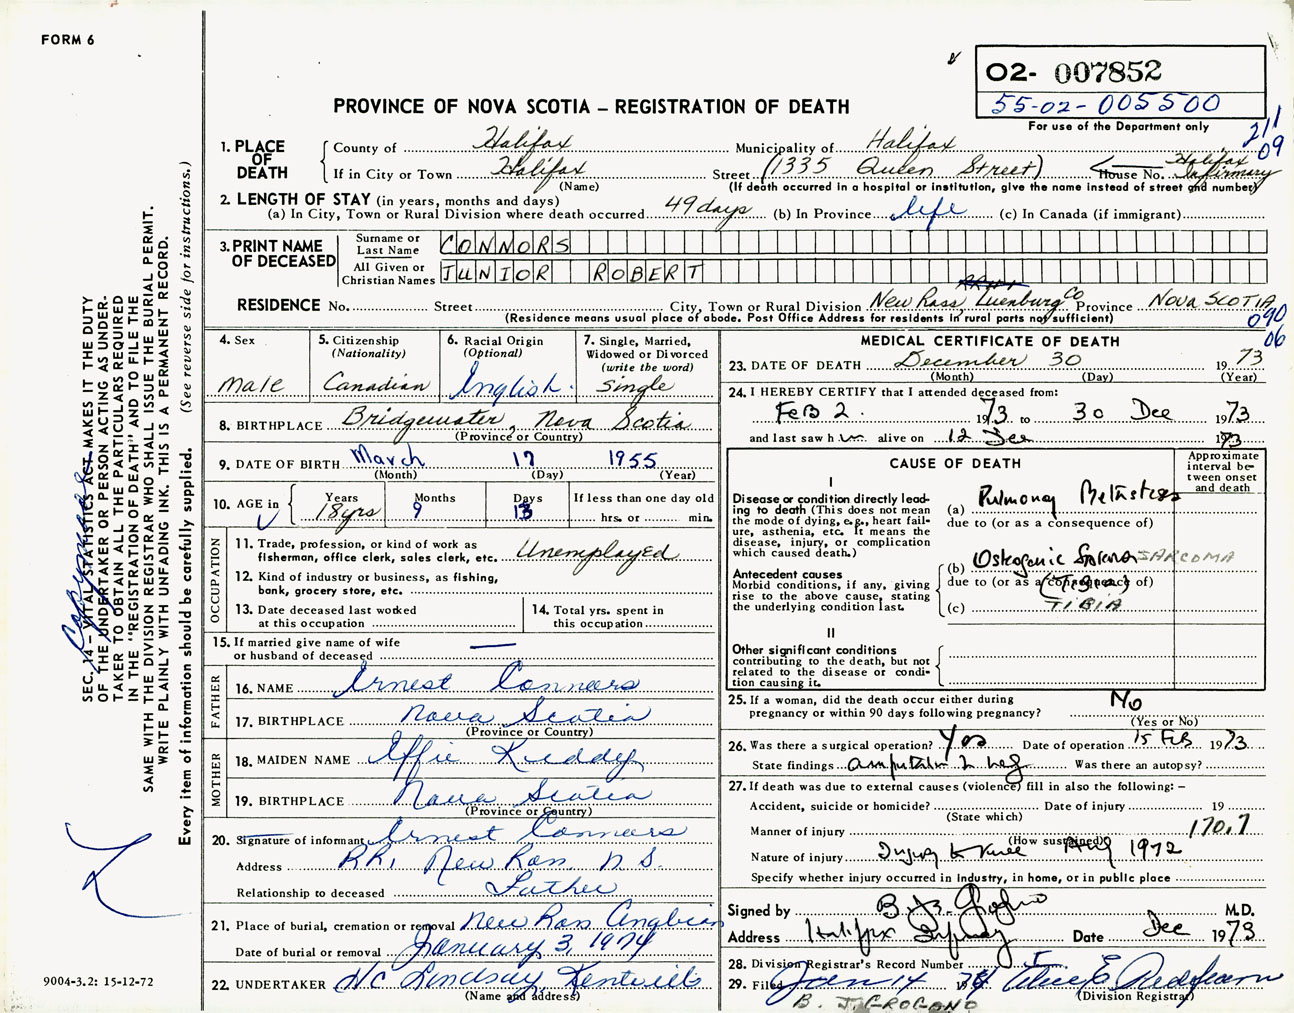 FORM 6
02- 007852
55-02-005500
For use of the Department only
211
09
PROVINCE OF NOVA SCOTIA – REGISTRATION OF DEATH
1. PLACE OF DEATH
County of Halifax Municipality of Halifax
If in City or Town Halifax Street (1335 Queen Street) House No. Halifax Infirmary
(Name) (If death occurred in a hospital or institution, give the name instead of street and number)
2. LENGTH OF STAY (in years, months and days)
(a) In City, Town or Rural Division where death occurred 49 days (b) In Province life (c) In Canada (if immigrant)
3. PRINT NAME OF DECEASED
Surname or Last Name CONNORS
All Given or Christian Names JUNIOR ROBERT
RESIDENCE No. Street City, Town or Rural Division New Ross, Luenburg Co Province NOVA SCOTIA
(Residence means usual place of abode. Post Office Address for residents in rural parts not sufficient)
090
06
4. Sex
Male
5. Citizenship
(Nationality)
Canadian
6. Racial Origin
(Optional)
English.
7. Single, Married,
Widowed or Divorced
(write the word)
Single
8. BIRTHPLACE Bridgewater, Nova Scotia
(Province or Country)
9. DATE OF BIRTH March 17 1955
(Month) (Day) (Year)
10. AGE in
Years Months Days If less than one day old
18yrs 9 13 hrs. or min.
OCCUPATION
11. Trade, profession, or kind of work as
fisherman, office clerk, sales clerk, etc. Unemployed
12. Kind of industry or business, as fishing,
bank, grocery store, etc.
13. Date deceased last worked
at this occupation
14. Total yrs. spent in
this occupation
15. If married give name of wife
or husband of deceased —
FATHER
16. NAME Ernest Connors
17. BIRTHPLACE Nova Scotia
(Province or Country)
MOTHER
18. MAIDEN NAME Effie Kiddy
19. BIRTHPLACE Nova Scotia
(Province or Country)
20. Signature of informant Ernest Connors
Address RR1 New Ross N.S.
Relationship to deceased Father
21. Place of burial, cremation or removal New Ross Anglican
Date of burial or removal January 3, 1974
22. UNDERTAKER HC Lindsay Kentville
(Name and address)
MEDICAL CERTIFICATE OF DEATH
23. DATE OF DEATH December 30 1973
(Month) (Day) (Year)
24. I HEREBY CERTIFY that I attended deceased from:
FEB 2. 1973 to 30 Dec 1973
and last saw him alive on 12 Dec 1973
CAUSE OF DEATH
Approximate
interval be-
tween onset
and death
I
Disease or condition directly lead-
ing to death (This does not mean
the mode of dying, e.g., heart fail-
ure, asthenia, etc. It means the
disease, injury, or complication
which caused death.)
(a) Pulmonary Metastases
due to (or as a consequence of)
Antecedent causes
Morbid conditions, if any, giving
rise to the above cause, stating
the underlying condition last.
(b) Osteogenic Sarcoma SARCOMA
due to (or as a consequence of)
(Tibia)
(c) TIBIA
II
Other significant conditions
contributing to the death, but not
related to the disease or condi-
tion causing it.
25. If a woman, did the death occur either during
pregnancy or within 90 days following pregnancy? No
(Yes or No)
26. Was there a surgical operation? Yes Date of operation 15 Feb 1973
State findings amputation L leg Was there an autopsy?
27. If death was due to external causes (violence) fill in also the following: –
Accident, suicide or homicide? Date of injury 19
(State which)
Manner of injury 170.7
(How sustained)
Nature of injury Injury to knee Aug 1972
Specify whether injury occurred in industry, in home, or in public place
Signed by M.D.
Address Halifax Infirmary Date Dec 1973
28. Division Registrar's Record Number 5
29. Filed Jan 14 1974
(Division Registrar)
B. J. GROGONO
SEC. 14 – VITAL STATISTICS ACT MAKES IT THE DUTY
OF THE UNDERTAKER OR PERSON ACTING AS UNDER-
TAKER TO OBTAIN ALL THE PARTICULARS REQUIRED
IN THE "REGISTRATION OF DEATH" AND TO FILE THE
SAME WITH THE DIVISION REGISTRAR WHO SHALL ISSUE THE BURIAL PERMIT.
WRITE PLAINLY WITH UNFADING INK. THIS IS A PERMANENT RECORD.
Every item of information should be carefully supplied. (See reverse side for instructions.)
9004-3.2: 15-12-72